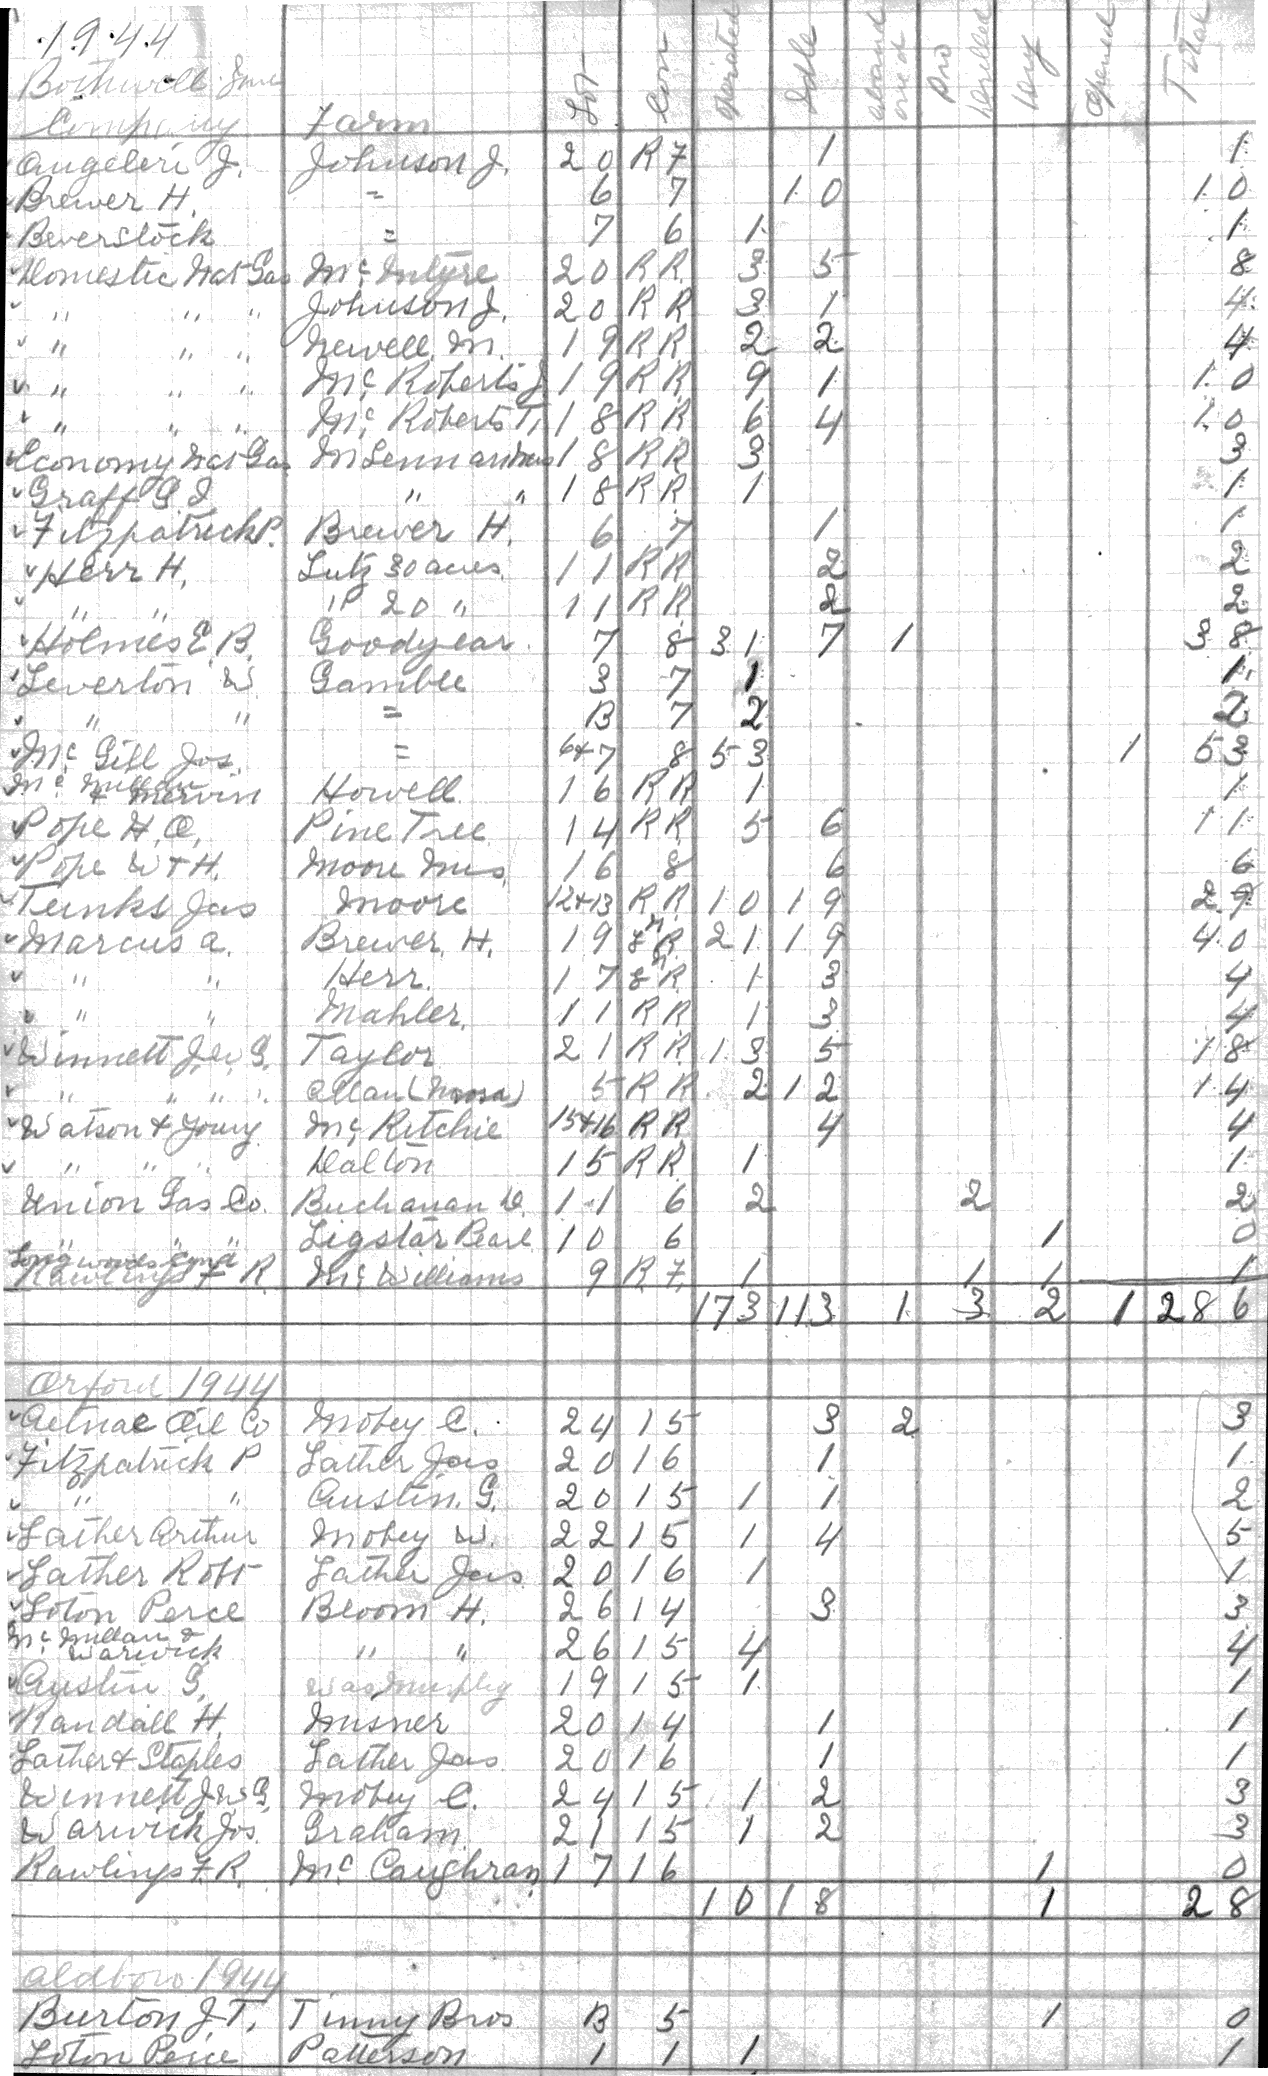 1944
Bothwell June
Company Farm Lot Con Operated Idle Aband oned Pro Drilled Dry Opened Total
Angeleri J. Johnson J. 20 R7 1 1
Brewer H. = 6 7 10 10
Beverstock = 7 6 1 1
Domestic Nat Gas Mc Intyre 20 RR 3 5 8
" " " Johnson J. 20 RR 3 1 4
" " " Newell M. 19 RR 2 2 4
" " " Mc Roberts J 19 RR 9 1 10
" " " Mc Roberts T. 18 RR 6 4 10
Economy Nat Gas 18 RR 3 3
Graff G. J " " 18 RR 1 1
Fitzpatrick P. Brewer H. 6 7 1 1
Herr H. Lutz 30 acres 11 RR 2 2
" " " 20 " 11 RR 2 2
Holmes E. B. Goodyear 7 8 31 7 1 38
Leverton W Gamble 3 7 1 1
" " = B 7 2 2
Mc Gill Jos. = 6+7 8 53 1 53
Mc Millan & Mervin Howell 16 RR 1 1
Pope H. O. Pine Tree 14 RR 5 6 11
Pope W + H. Moore Mrs. 16 8 6 6
Teunks Jas Moore 12+13 RR 10 19 29
Marcus A. Brewer H. 19 R 21 19 40
" " Herr. 17 R 1 3 4
" " Mahler. 11 RR 1 3 4
Winnett J. W. G. Taylor 21 RR 13 5 18
" " " " Allan (Mosa) 5 RR 2 12 14
Watson & Young Mc Ritchie 15+16 RR 4 4
" " " Dalton 15 RR 1 1
Union Gas Co. Buchanan D. 11 6 2 2 2
" " " Ligstar Pearl 10 6 1 0
Longwoods
Rawlings F R. Mc Williams 9 R7 1 1 1 1
173 113 1 3 2 1 286
Orford 1944
Aetnae Oil Co Mobey C. 24 15 3 2 3
Fitzpatrick P Lather Jas 20 16 1 1
" " Austin. G. 20 15 1 1 2
Lather Arthur Mobey W. 22 15 1 4 5
Lather Robt Lather Jas 20 16 1 1
Loton Perce Bloom H. 26 14 3 3
Mc Millan & Warwick " " 26 15 4 4
Austin G. Was Murphy 19 15 1 1
Randall H. Misner 20 14 1 1
Lather & Staples Lather Jas 20 16 1 1
Winnett J W G. Mobey C. 24 15 1 2 3
Warwick Jos. Graham 21 15 1 2 3
Rawlings F. R. Mc Caughran 17 16 1 0
10 18 1 28
Aldboro 1944
Burton J. T. Tinny Bros B 5 1 0
Loton Perce Patterson 1 1 1 1